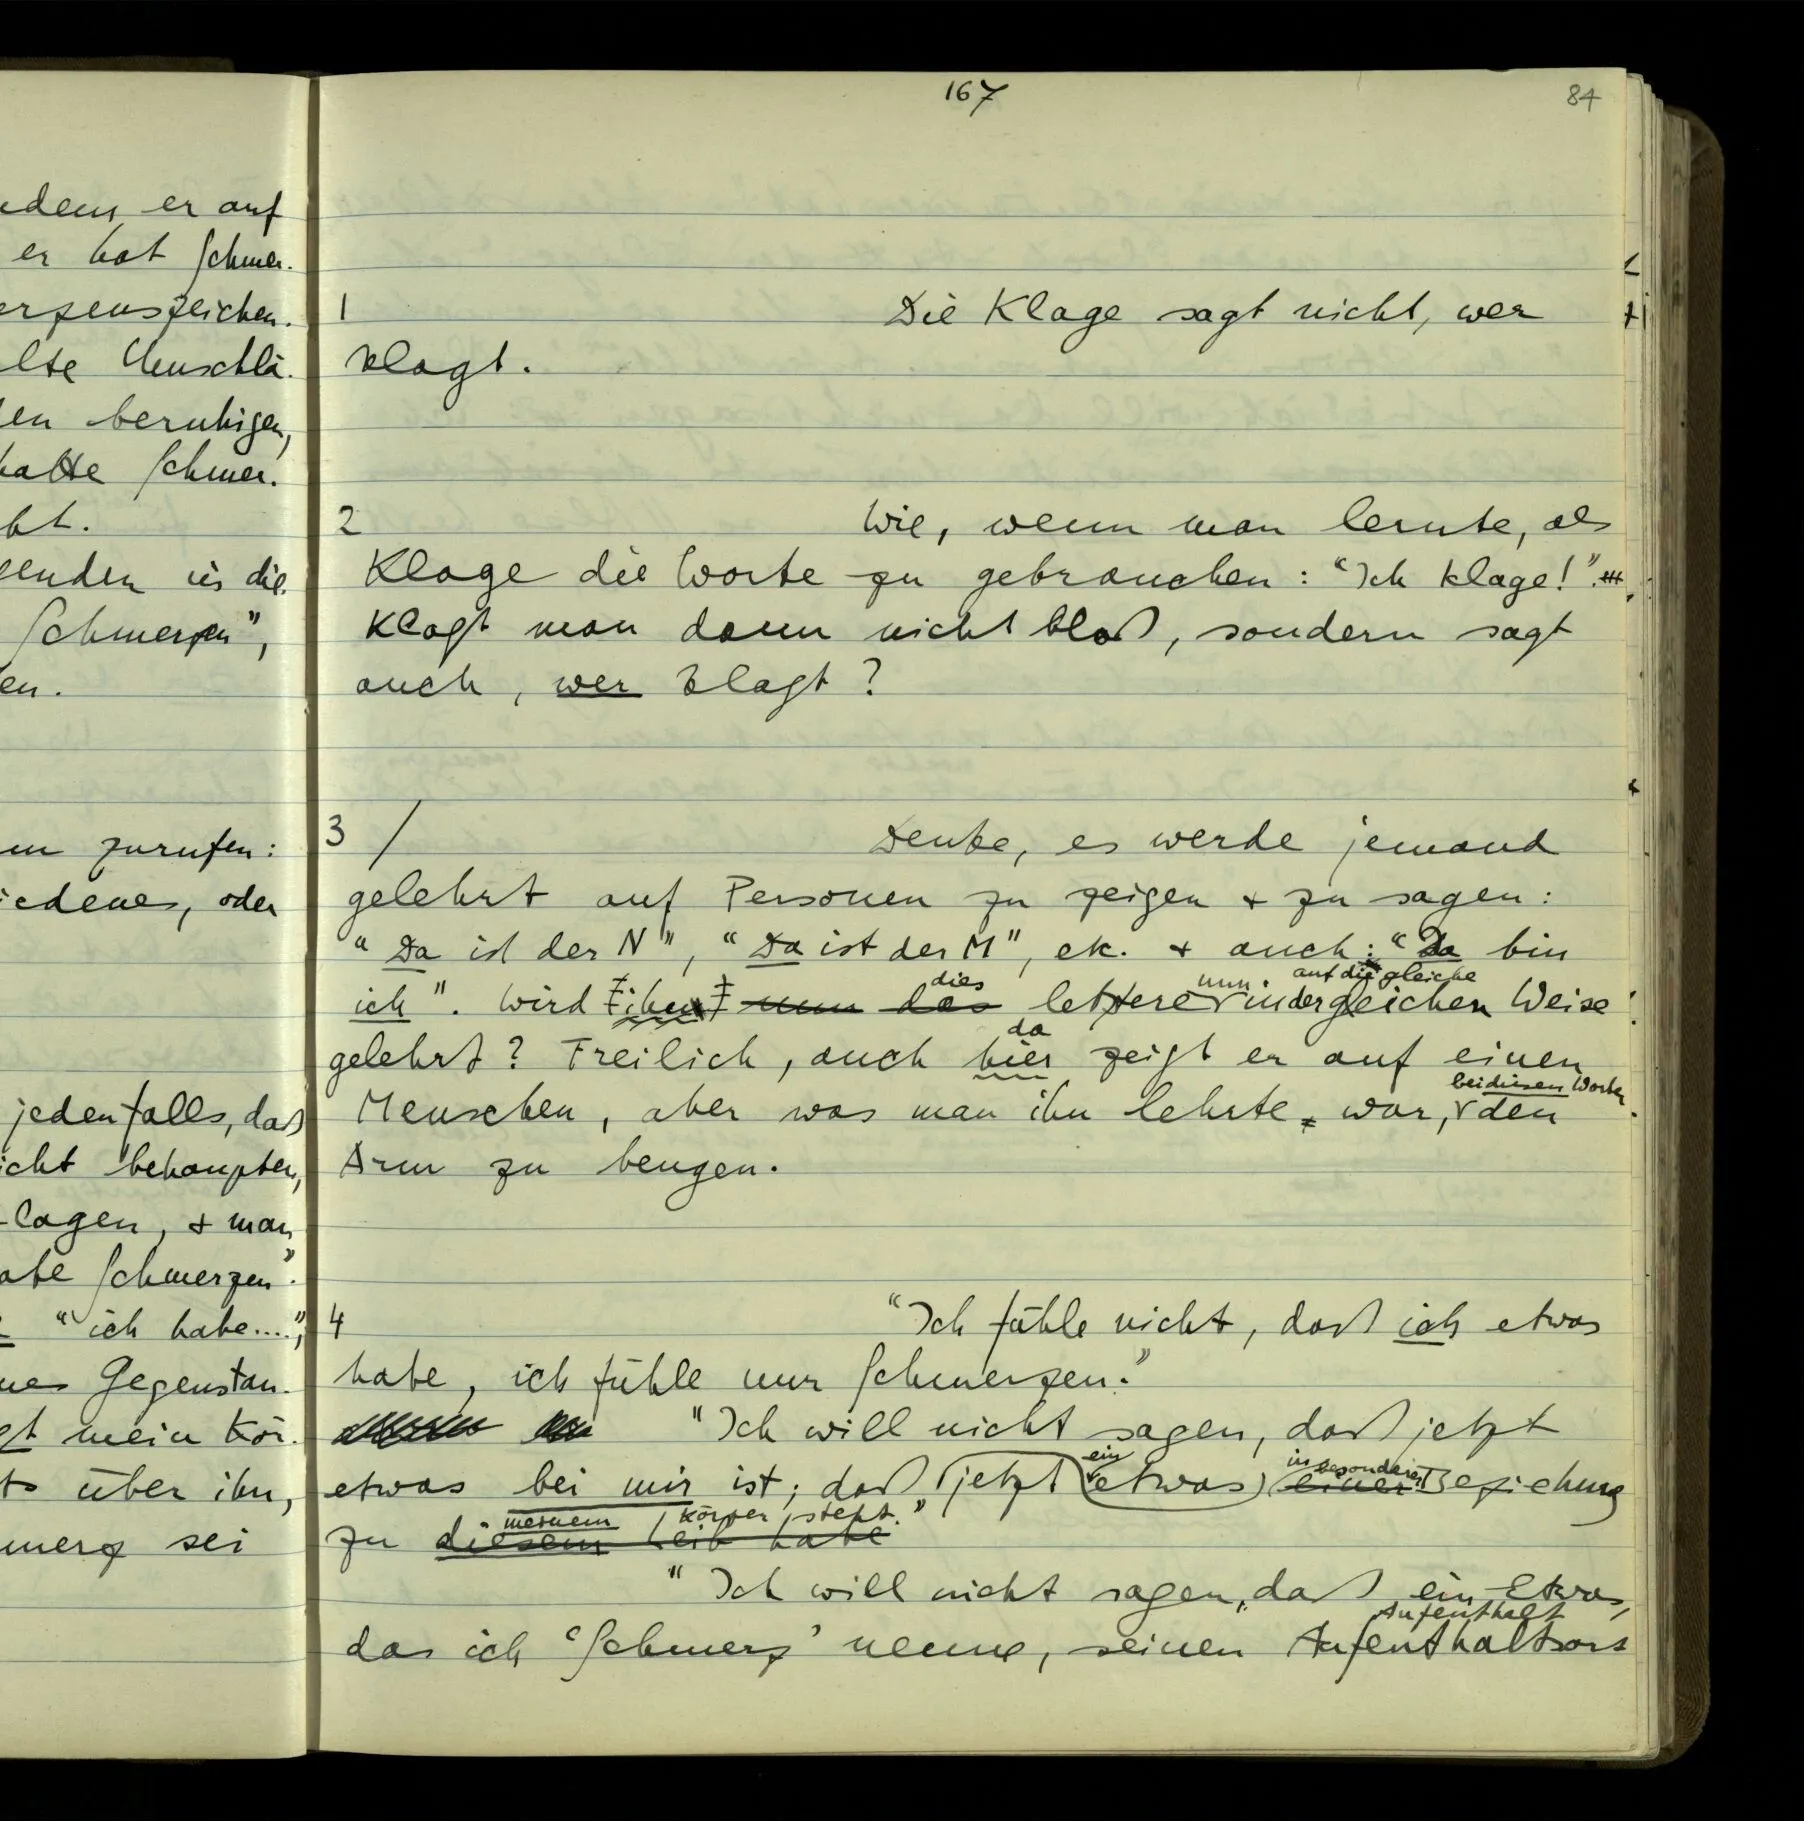 167
84
edem, er auf
er hat Schmer-
erzenszeichen.
alte Umschlä-
en beruhigen,
hatte Schmer-
bt.
genden in die
Schmerzen",
en.
m zurufen:
iedenes, oder
jedenfalls, daß
icht behaupten,
lagen, + man
abe Schmerzen".
"ich habe....",
nes Gegenstan-
gt mein Kör-
ts über ihn,
merz sei
1 Die Klage sagt nicht, wer
klagt.
2 Wie, wenn man lernte, als
Klage die Worte zu gebrauchen: "Ich klage!".
Klagt man dann nicht bloß, sondern sagt
auch, wer klagt?
3 / Denke, es werde jemand
gelehrt auf Personen zu zeigen + zu sagen:
"Da ist der N", "Da ist der M", etc. + auch: "Da bin
dies nun auf die gleiche
ich". Wird ihm nun das letztere in der gleichen Weise
da
gelehrt? Freilich, auch hier zeigt er auf einen
bei diesen Worten
Menschen, aber was man ihn lehrte, war, den
Arm zu beugen.
4 "Ich fühle nicht, daß ich etwas
habe, ich fühle nur Schmerzen."
"Ich will nicht sagen, daß jetzt
ein in besonderer
etwas bei mir ist; daß jetzt etwas einer Beziehung
meinem Körper steht."
zu diesem Leib habe
"Ich will nicht sagen, daß ein Etwas,
Aufenthalt
das ich 'Schmerz' nenne, seinen Aufenthaltsort